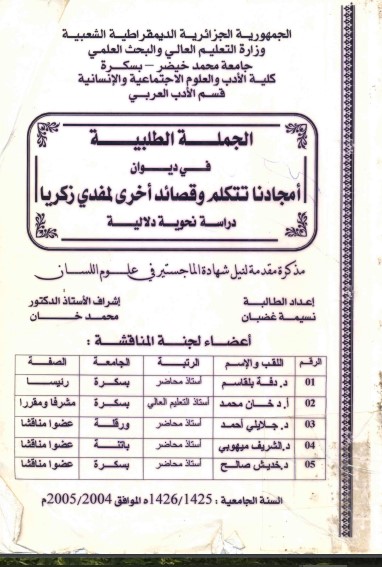 الجمهورية الجزائرية الديمقراطية الشعبية
وزارة التعليم العالي والبحث العلمي
جامعة محمد خيضر – بسكرة
كلية الأدب والعلوم الاجتماعية والإنسانية
قسم الأدب العربي
الجملة الطلبية
في ديوان
أمجادنا تتكلم وقصائد أخرى لمفدي زكريا
دراسة نحوية دلالية
مذكرة مقدمة لنيل شهادة الماجستير في علوم اللسان
إعداد الطالبة إشراف الأستاذ الدكتور
نسيمة غضبان محمد خان
أعضاء لجنة المناقشة :
الرقم اللقب والإسم الرتبة الجامعة الصفة
01 د. دفة بلقاسم أستاذ محاضر بسكرة رئيسا
02 أ.د خان محمد أستاذ التعليم العالي بسكرة مشرفا ومقررا
03 د. جلايلي أحمد أستاذ محاضر ورقلة عضوا مناقشا
04 د.الشريف ميهوبي أستاذ محاضر باتنة عضوا مناقشا
05 د. خديش صالح أستاذ محاضر بسكرة عضوا مناقشا
السنة الجامعية : 1426/1425ه الموافق 2005/2004م